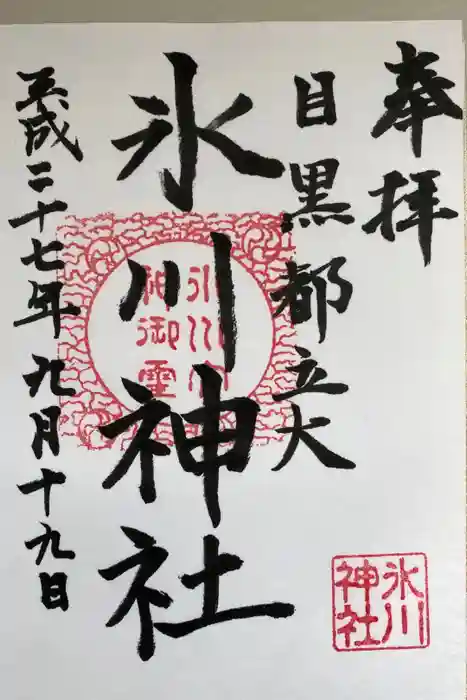 奉拝
目黒都立大
氷川神社
平成二十七年九月十九日
氷川
神社